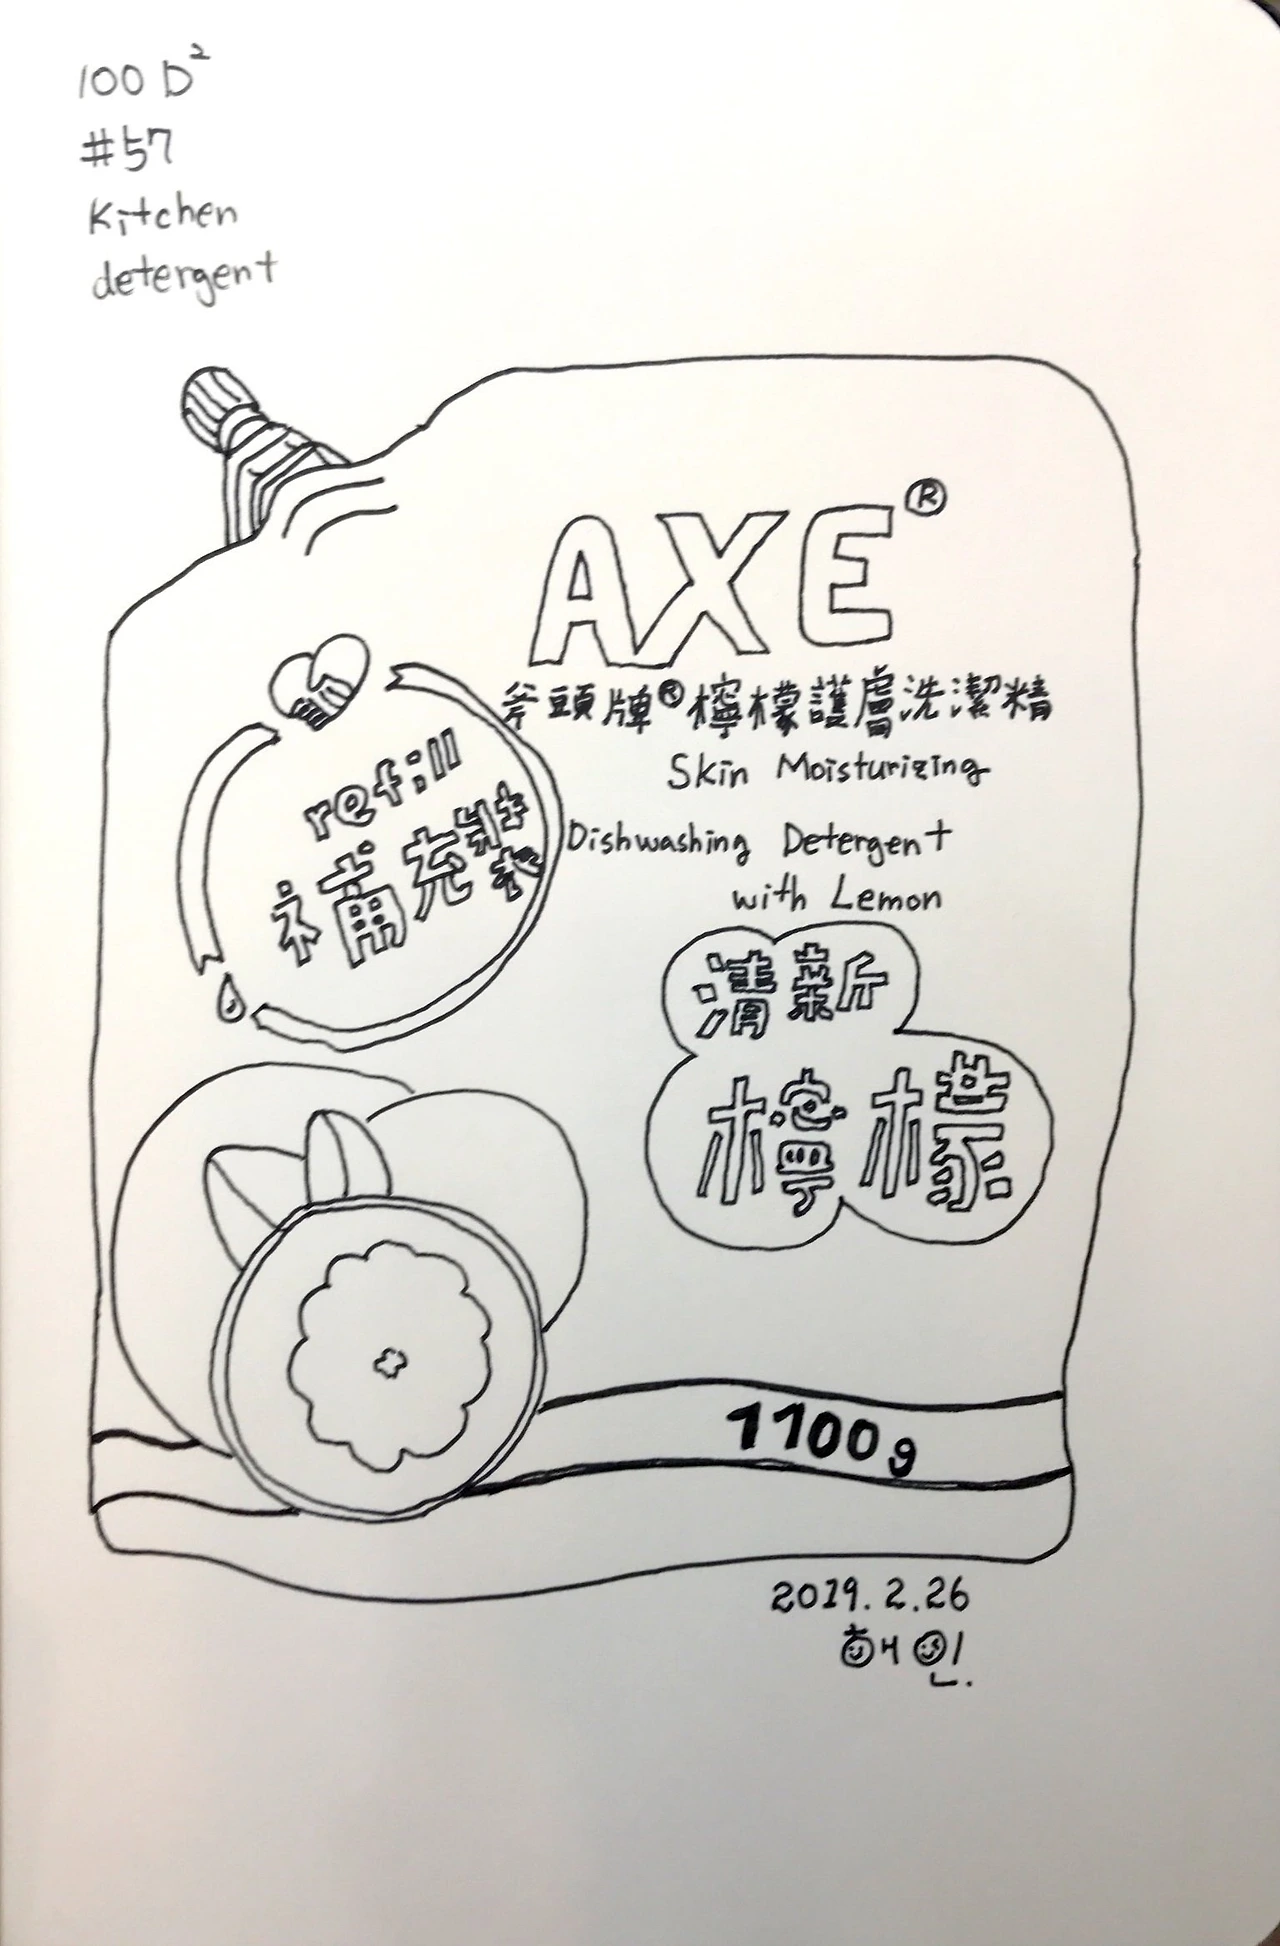 100 D²
#57
Kitchen
detergent
AXE®
斧頭牌®檸檬護膚洗潔精
Skin Moisturizing
Dishwashing Detergent
with Lemon
refill
補充裝
清新
檸檬
1100g
2019.2.26
해인.